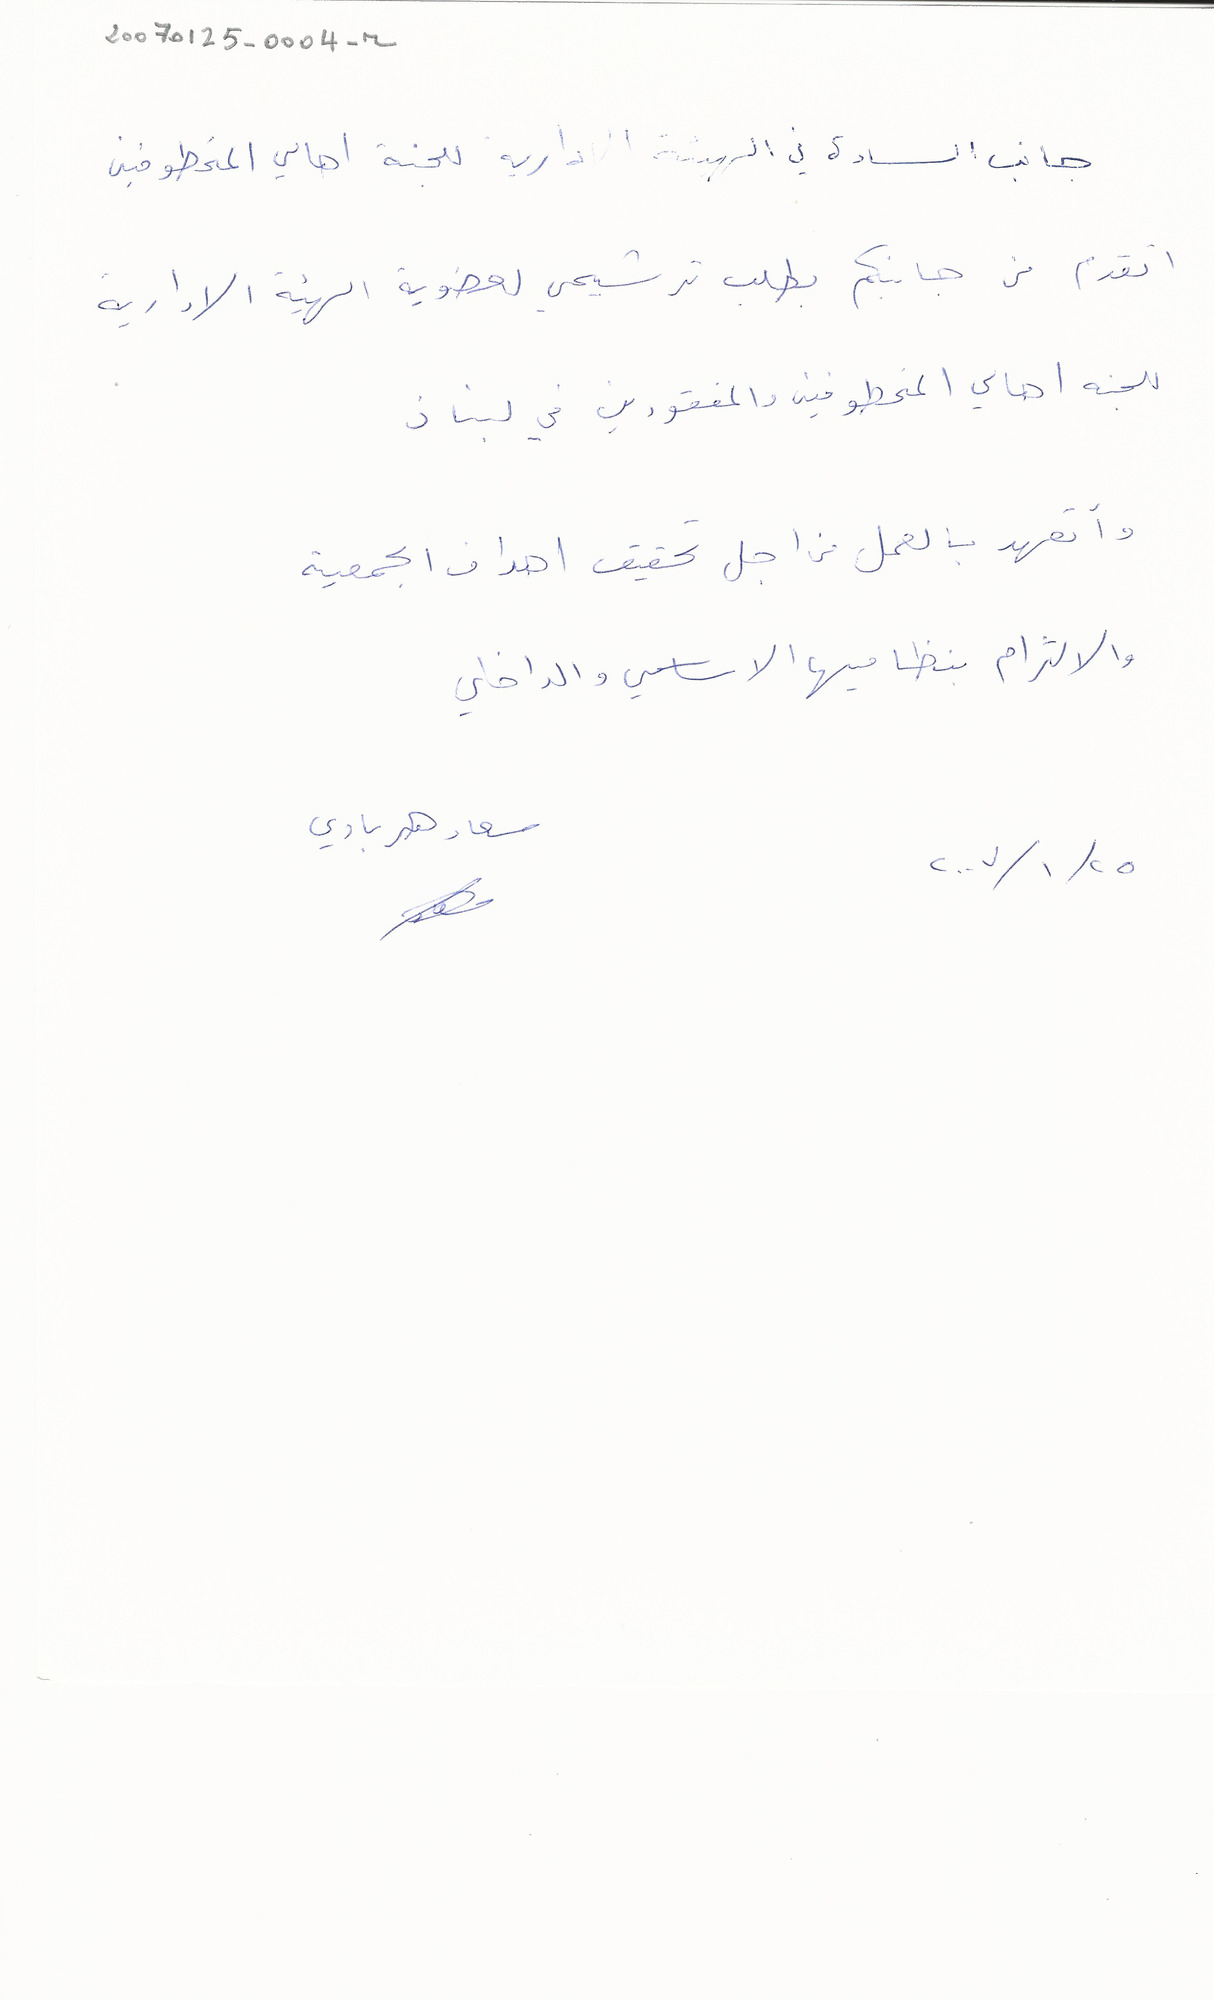 20070125-0004-م
جانب السادة في الهيئة الادارية للجنة اهالي المخطوفين
اتقدم من جانبكم بطلب ترشيحي لعضوية الهيئة الادارية
للجنه اهالي المخطوفين والمفقودين في لبنان
وأتعهد بالعمل من اجل تحقيق اهداف الجمعية
والالتزام بنظاميها الاساسي والداخلي
سعاد هرباوي
٢٥/١/٢٠٠٧